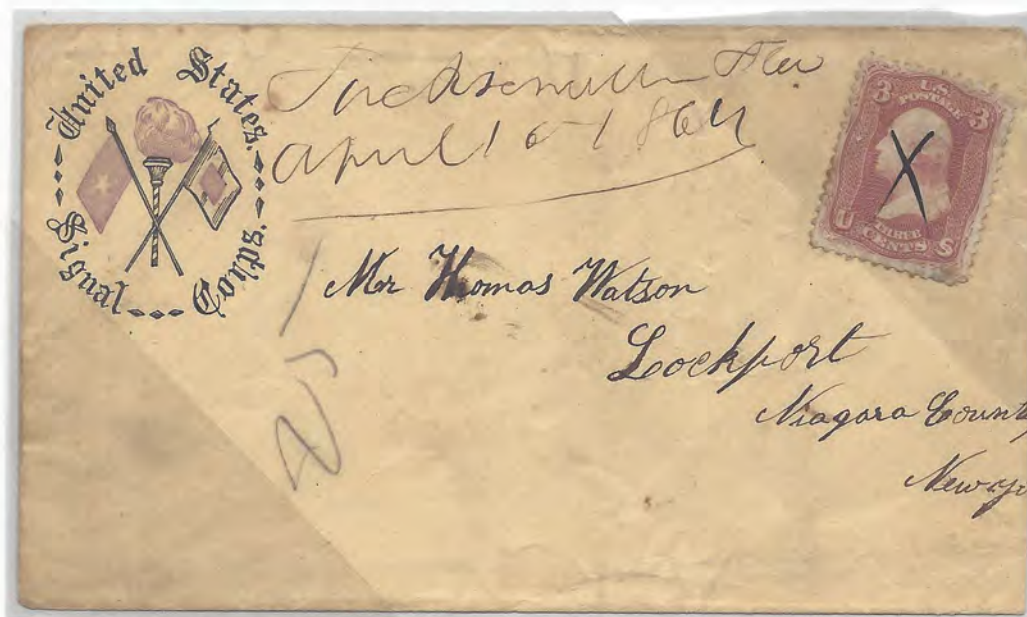 United States
Signal Corps.
Jacksonville Fla
April 16 1864
U.S.
POSTAGE
3 3
X
THREE
CENTS
U S
Mr Thomas Watson
Lockport
Niagara County
New yo